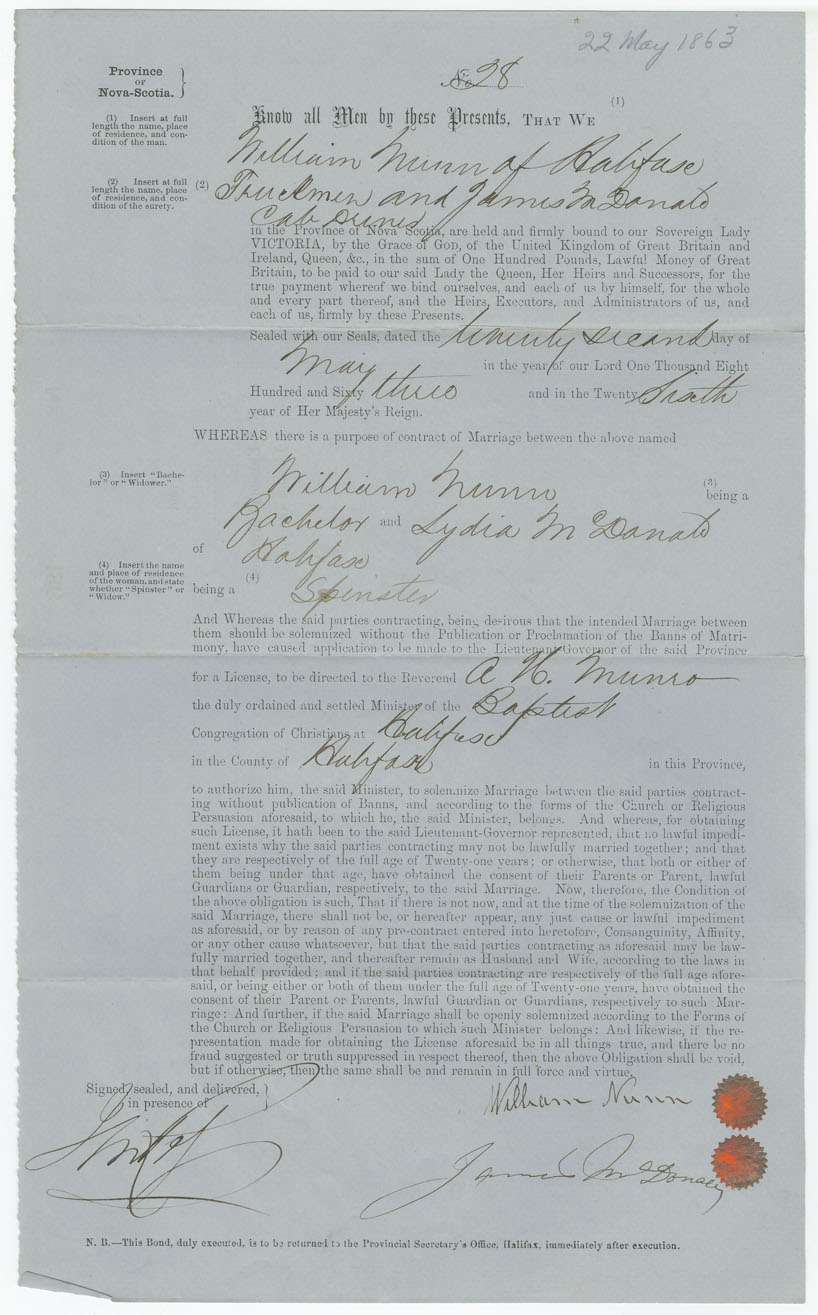 22 May 1863
Province
OF
Nova-Scotia.
No 28
(1)
Know all Men by these Presents, THAT WE
(1) Insert at full
length the name, place
of residence, and con-
dition of the man.
William Nunn of Halifax
(2) Insert at full
length the name, place
of residence, and con-
dition of the surety.
(2) Truckmen and James McDonald
Cab
in the Province of Nova Scotia, are held and firmly bound to our Sovereign Lady
VICTORIA, by the Grace of GOD, of the United Kingdom of Great Britain and
Ireland, Queen, &c., in the sum of One Hundred Pounds, Lawful Money of Great
Britain, to be paid to our said Lady the Queen, Her Heirs and Successors, for the
true payment whereof we bind ourselves, and each of us by himself, for the whole
and every part thereof, and the Heirs, Executors, and Administrators of us, and
each of us, firmly by these Presents.
Sealed with our Seals, dated the twenty second day of
May in the year of our Lord One Thousand Eight
Hundred and Sixty three and in the Twenty Sixth
year of Her Majesty's Reign.
WHEREAS there is a purpose of contract of Marriage between the above named
(3) Insert "Bache-
lor" or "Widower."
William Nunn (3) being a
Bachelor and Lydia McDonald
of Halifax
(4) Insert the name
and place of residence
of the woman, and state
whether "Spinster" or
"Widow."
(4)
being a Spinster
And Whereas the said parties contracting, being desirous that the intended Marriage between
them should be solemnized without the Publication or Proclamation of the Banns of Matri-
mony, have caused application to be made to the Lieutenant-Governor of the said Province
for a License, to be directed to the Reverend A H. Munro
the duly ordained and settled Minister of the Baptist
Congregation of Christians at Halifax
in the County of Halifax in this Province,
to authorize him, the said Minister, to solemnize Marriage between the said parties contract-
ing without publication of Banns, and according to the forms of the Church or Religious
Persuasion aforesaid, to which he, the said Minister, belongs. And whereas, for obtaining
such License, it hath been to the said Lieutenant-Governor represented, that no lawful impedi-
ment exists why the said parties contracting may not be lawfully married together; and that
they are respectively of the full age of Twenty-one years; or otherwise, that both or either of
them being under that age, have obtained the consent of their Parents or Parent, lawful
Guardians or Guardian, respectively, to the said Marriage. Now, therefore, the Condition of
the above obligation is such, That if there is not now, and at the time of the solemnization of the
said Marriage, there shall not be, or hereafter appear, any just cause or lawful impediment
as aforesaid, or by reason of any pre-contract entered into heretofore, Consanguinity, Affinity,
or any other cause whatsoever, but that the said parties contracting as aforesaid may be law-
fully married together, and thereafter remain as Husband and Wife, according to the laws in
that behalf provided; and if the said parties contracting are respectively of the full age afore-
said, or being either or both of them under the full age of Twenty-one years, have obtained the
consent of their Parent or Parents, lawful Guardian or Guardians, respectively to such Mar-
riage: And further, if the said Marriage shall be openly solemnized according to the Forms of
the Church or Religious Persuasion to which such Minister belongs: And likewise, if the re-
presentation made for obtaining the License aforesaid be in all things true, and there be no
fraud suggested or truth suppressed in respect thereof, then the above Obligation shall be void,
but if otherwise, then the same shall be and remain in full force and virtue.
Signed, sealed, and delivered,
in presence of
William Nunn
James McDonald
N. B.—This Bond, duly executed, is to be returned to the Provincial Secretary's Office, Halifax, immediately after execution.